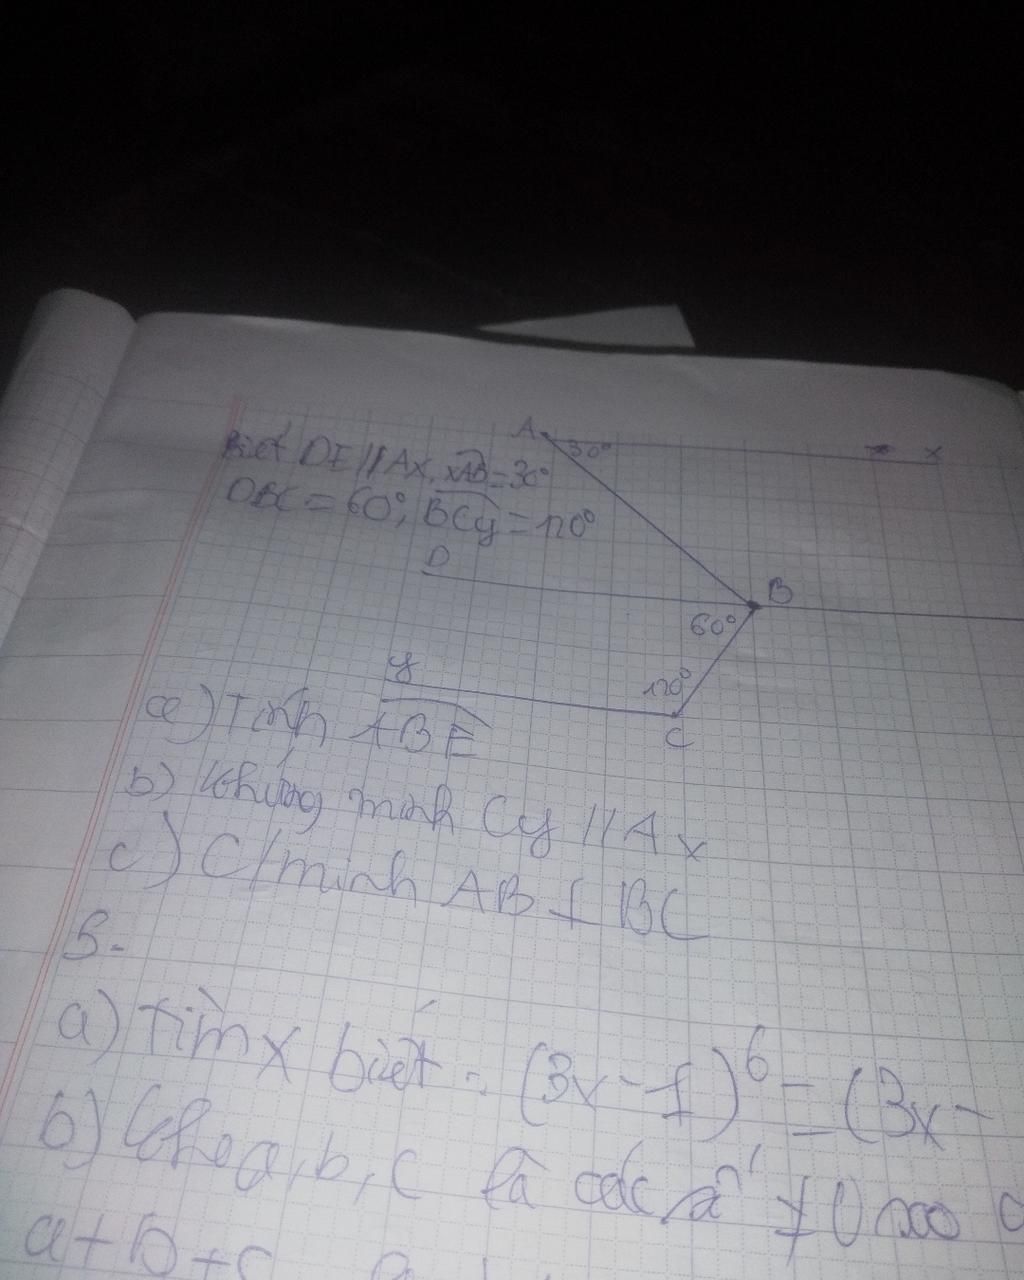 Biết DE // Ax, xAB = 30°
DBC = 60°, BCy = 120°
A 30° x
D B
60°
y 120°
C
a) Tính ABE
b) Chứng minh Cy // Ax
c) C/minh AB ⊥ BC
5.
a) Tìm x biết : (3x - 1)^6 = (3x -
b) Cho a, b, c là các
a + b + c